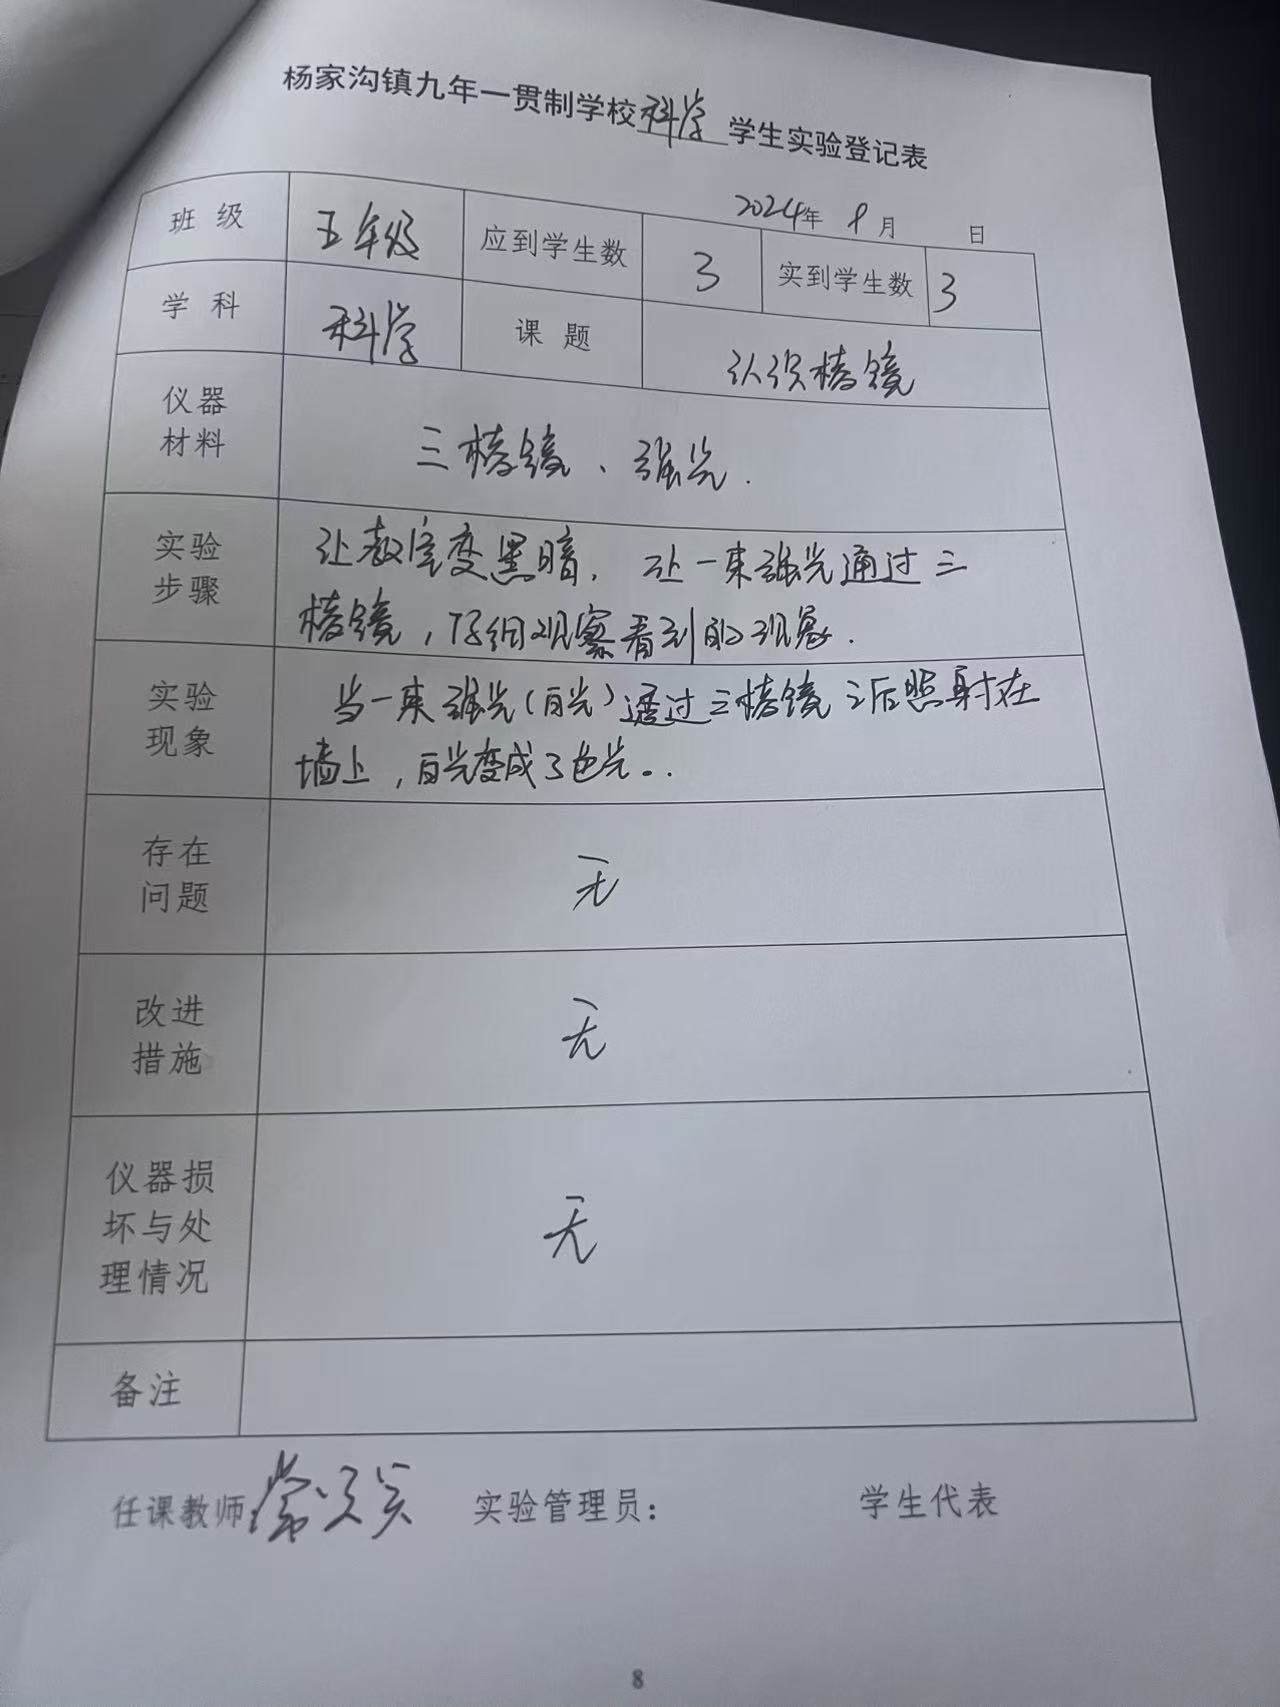 杨家沟镇九年一贯制学校科学学生实验登记表
2024年 9月 日
班级 五年级 应到学生数 3 实到学生数 3
学科 科学 课题 认识棱镜
仪器材料 三棱镜、强光.
实验步骤 让教室变黑暗，让一束强光通过三
棱镜，仔细观察看到的现象.
实验现象 当一束强光(白光)透过三棱镜之后照射在
墙上，白光变成了色光。.
存在问题 无
改进措施 无
仪器损坏与处理情况 无
备注
任课教师: 实验管理员: 学生代表
8